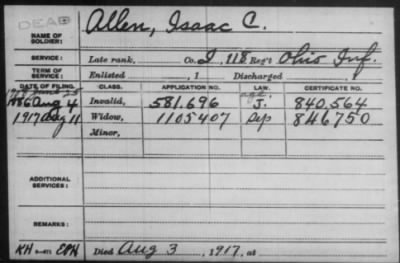 DEAD
NAME OF SOLDIER: Allen, Isaac C.
SERVICE: Late rank, Co. I, 118 Reg't Ohio Inf.
TERM OF SERVICE: Enlisted , 1 Discharged , 1
DATE OF FILING. CLASS. APPLICATION NO. LAW. CERTIFICATE NO.
Aug 4 Invalid, 581.696 J. 840.564
1917 Aug 11 Widow, 1105407 846750
Minor,
ADDITIONAL SERVICES:
REMARKS:
KH Died Aug 3, 1917, at